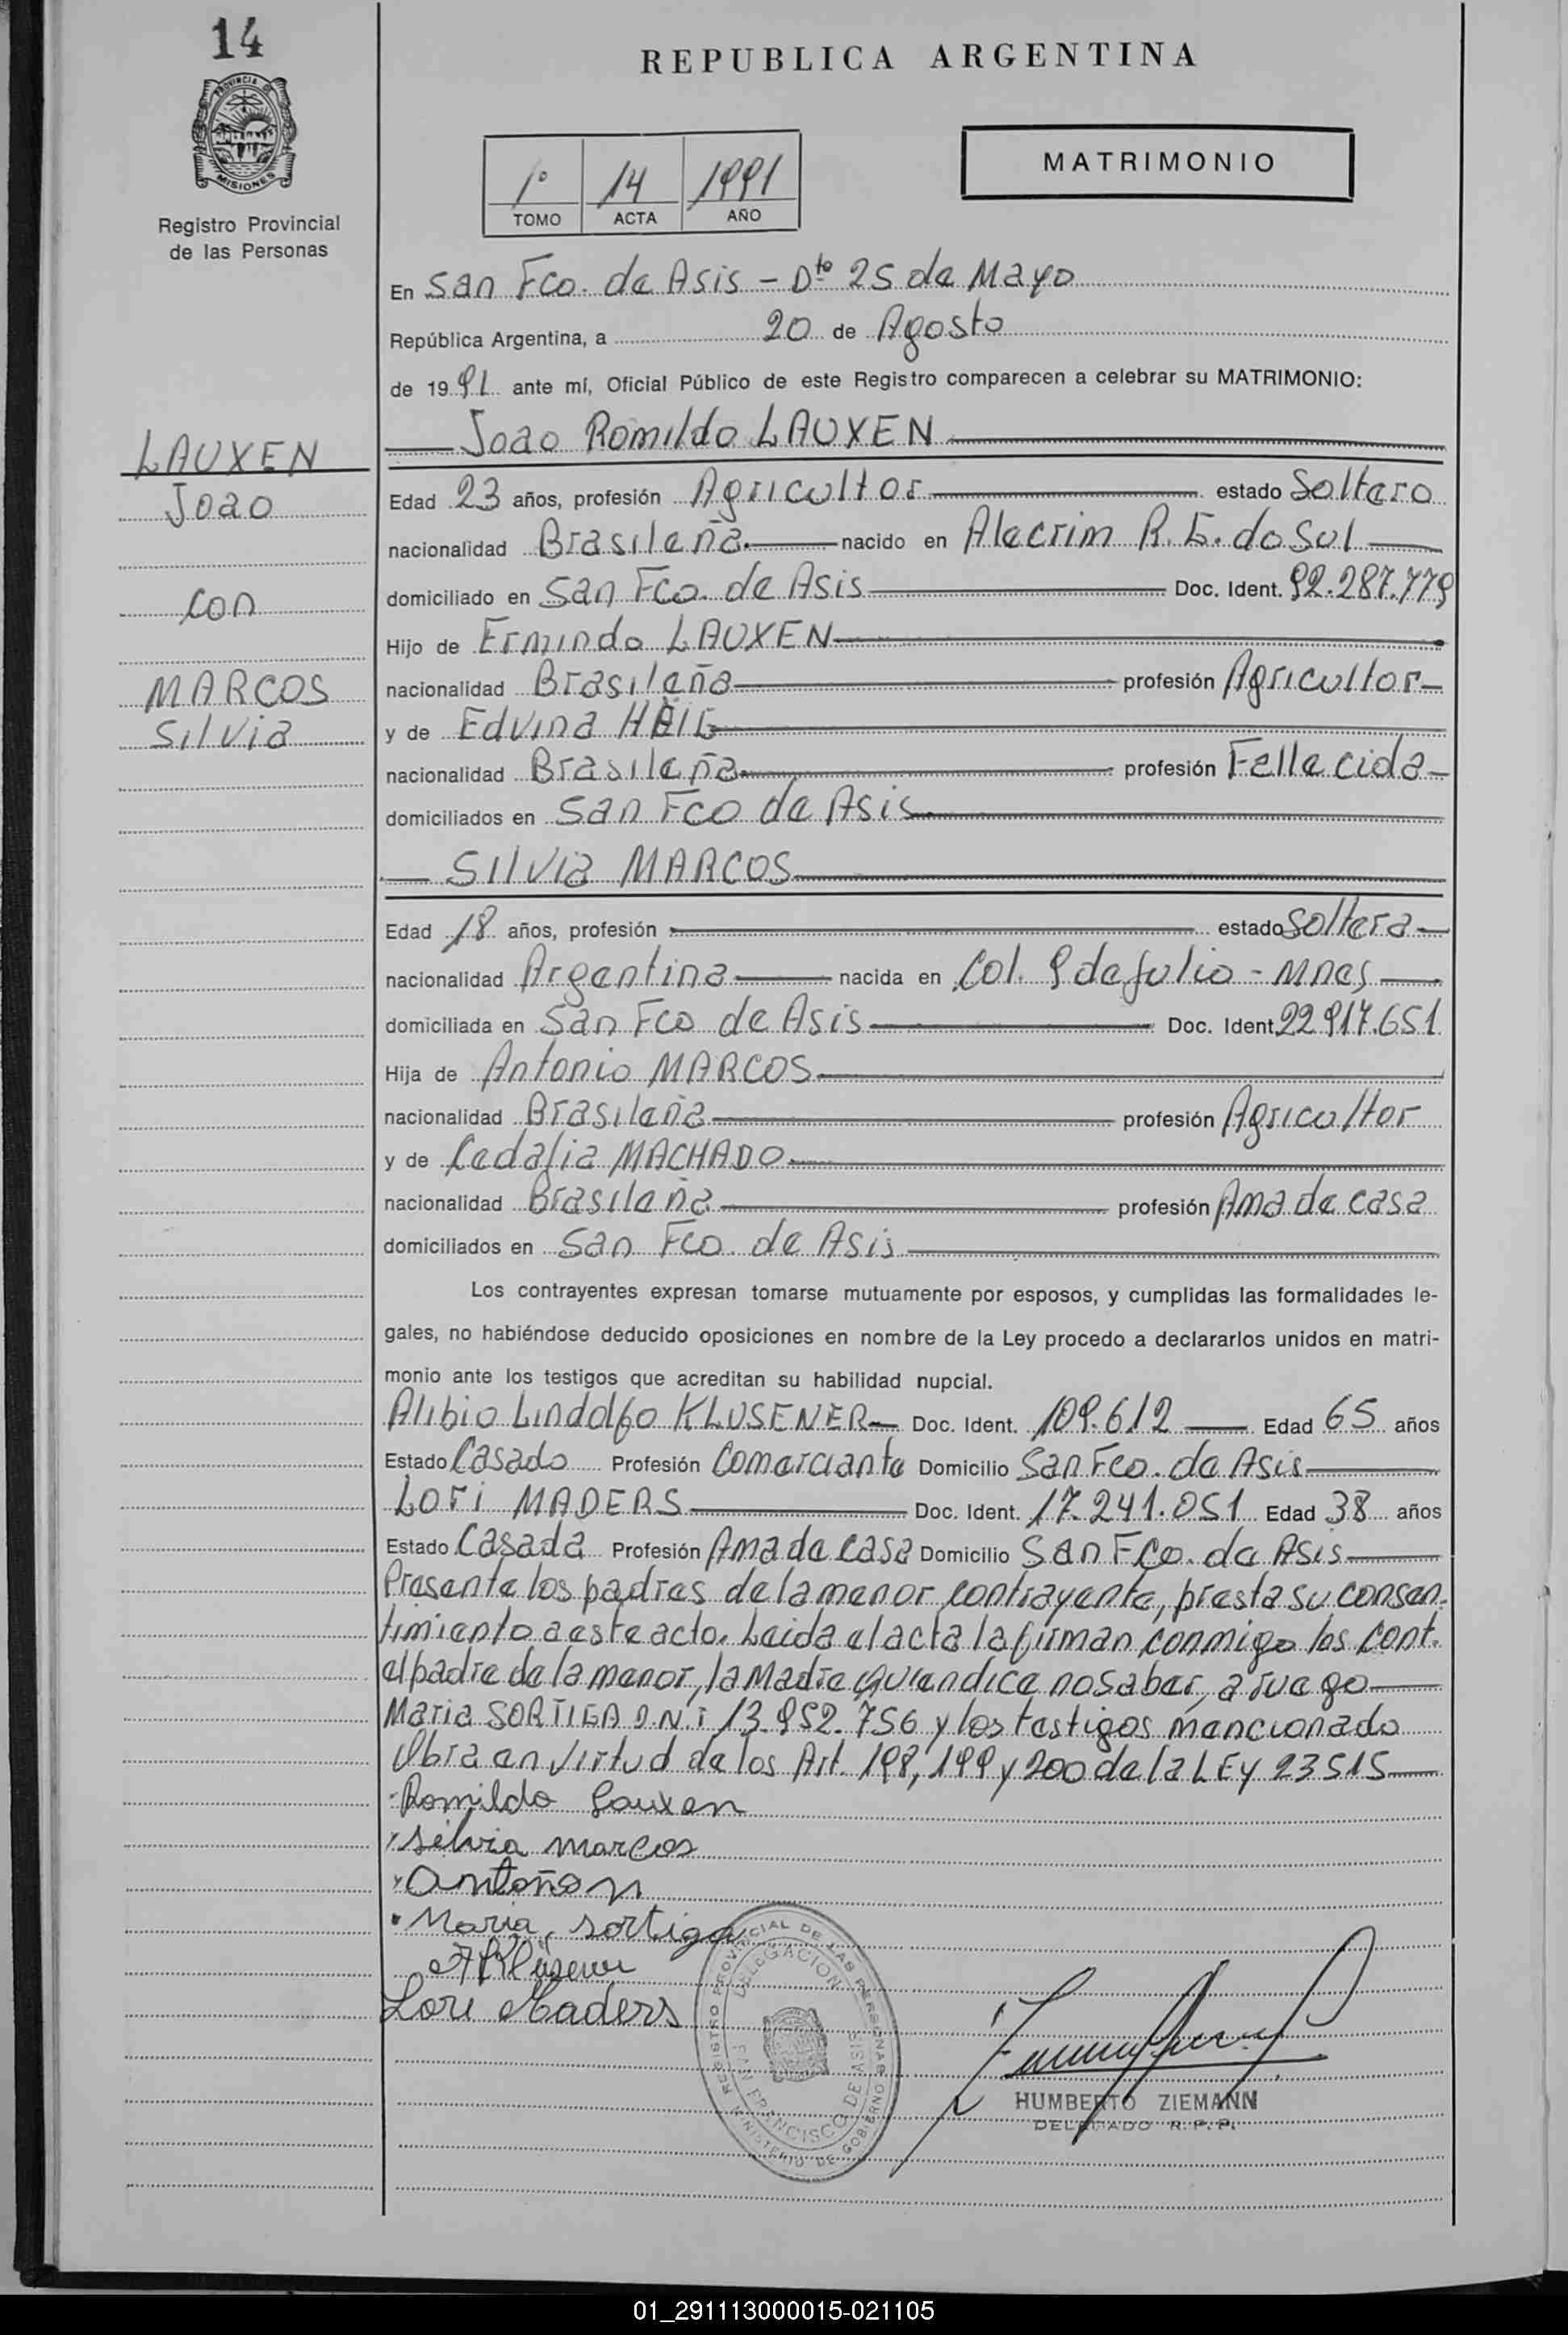 14
REPUBLICA ARGENTINA
PROVINCIA DE
MISIONES
Registro Provincial
de las Personas
1º 14 1991
TOMO ACTA AÑO
MATRIMONIO
En San Fco. de Asis - Dto 25 de Mayo
República Argentina, a 20 de Agosto
de 19 91 ante mí, Oficial Público de este Registro comparecen a celebrar su MATRIMONIO:
Joao Romildo LAUXEN
LAUXEN
Joao
con
MARCOS
Silvia
Edad 23 años, profesión Agricultor estado Soltero
nacionalidad Brasileña nacido en Alecrim R. G. do Sul
domiciliado en San Fco. de Asis Doc. Ident. 92.287.779
Hijo de Ermindo LAUXEN
nacionalidad Brasileña profesión Agricultor
y de Edvina
nacionalidad Brasileña profesión Fallecida
domiciliados en San Fco de Asis
Silvia MARCOS
Edad 18 años, profesión estado Soltera
nacionalidad Argentina nacida en Col. 9 de Julio - Mnes
domiciliada en San Fco de Asis Doc. Ident. 22.917.651
Hija de Antonio MARCOS
nacionalidad Brasileña profesión Agricultor
y de Cedalia MACHADO
nacionalidad Brasileña profesión Ama de casa
domiciliados en San Fco. de Asis
Los contrayentes expresan tomarse mutuamente por esposos, y cumplidas las formalidades le-
gales, no habiéndose deducido oposiciones en nombre de la Ley procedo a declararlos unidos en matri-
monio ante los testigos que acreditan su habilidad nupcial.
Alibio Lindolfo KLUSENER Doc. Ident. 109.612 Edad 65 años
Estado Casado Profesión Comerciante Domicilio San Fco. de Asis
Lori MADERS Doc. Ident. 17.241.051 Edad 38 años
Estado Casada Profesión Ama de casa Domicilio San Fco. de Asis
Presente los padres de la menor contrayente, presta su consen-
timiento a este acto. Leida el acta la firman conmigo los cont.
el padre de la menor, la Madre quien dice no saber, a ruego
Maria SORTIGA D.N.I 13.952.756 y los testigos mencionado
Obra en virtud de los Art. 198, 199 y 200 de la LEY 23515
Romildo Lauxen
Silvia marcos
Antoño M
Maria sortiga
A Klüsener
Lori Maders
REGISTRO PROVINCIAL DE LAS PERSONAS
DELEGACION
SAN FRANCISCO DE ASIS
MINISTERIO DE GOBIERNO
HUMBERTO ZIEMANN
DELEGADO R.P.P.
01_291113000015-021105